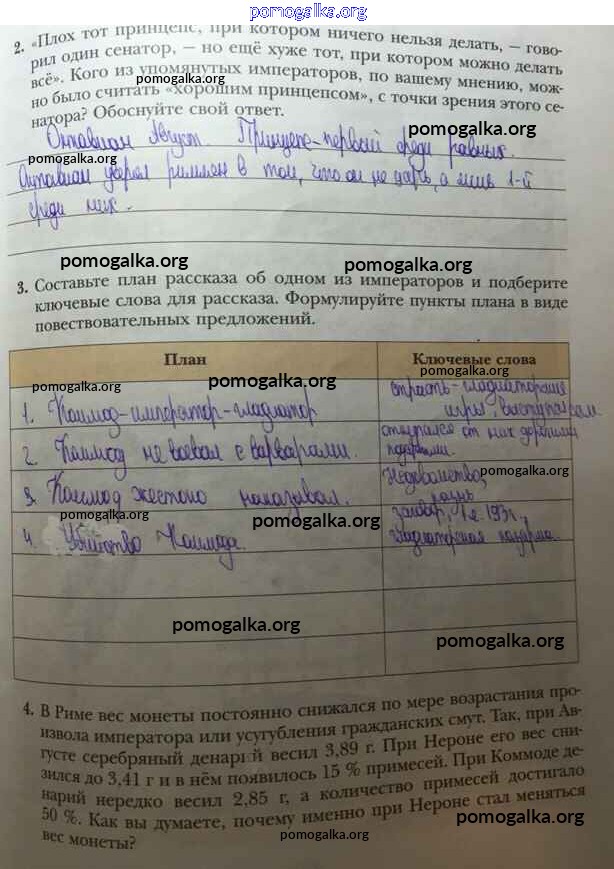 pomogalka.org
2. «Плох тот принцепс, при котором ничего нельзя делать, – гово-
рил один сенатор, – но ещё хуже тот, при котором можно делать
всё». Кого из упомянутых императоров, по вашему мнению, мож-
pomogalka.org
но было считать «хорошим принцепсом», с точки зрения этого се-
натора? Обоснуйте свой ответ.
pomogalka.org
Октавиан Август. Принцепс-первый среди равных.
pomogalka.org
Октавиан уверял римлян в том, что он не царь, а лишь 1-й
среди них.
pomogalka.org
pomogalka.org
3. Составьте план рассказа об одном из императоров и подберите
ключевые слова для рассказа. Формулируйте пункты плана в виде
повествовательных предложений.
План Ключевые слова
pomogalka.org pomogalka.org pomogalka.org
страсть-гладиаторские
1. Коммод-император-гладиатор игры, выступал сам.
pomogalka.org
2. Коммод не воевал с варварами. откупался от них дорогими
подарками.
pomogalka.org
3. Коммод жестоко наказывал. Недовольство, казнь
pomogalka.org
заговор, 193г.,
4. Убийство Коммода. гладиаторская казарма.
pomogalka.org
pomogalka.org
pomogalka.org
pomogalka.org
4. В Риме вес монеты постоянно снижался по мере возрастания про-
извола императора или усугубления гражданских смут. Так, при Ав-
густе серебряный денарий весил 3,89 г. При Нероне его вес сни-
зился до 3,41 г и в нём появилось 15 % примесей. При Коммоде де-
нарий нередко весил 2,85 г, а количество примесей достигало
50 %. Как вы думаете, почему именно при Нероне стал меняться
вес монеты?
pomogalka.org
pomogalka.org